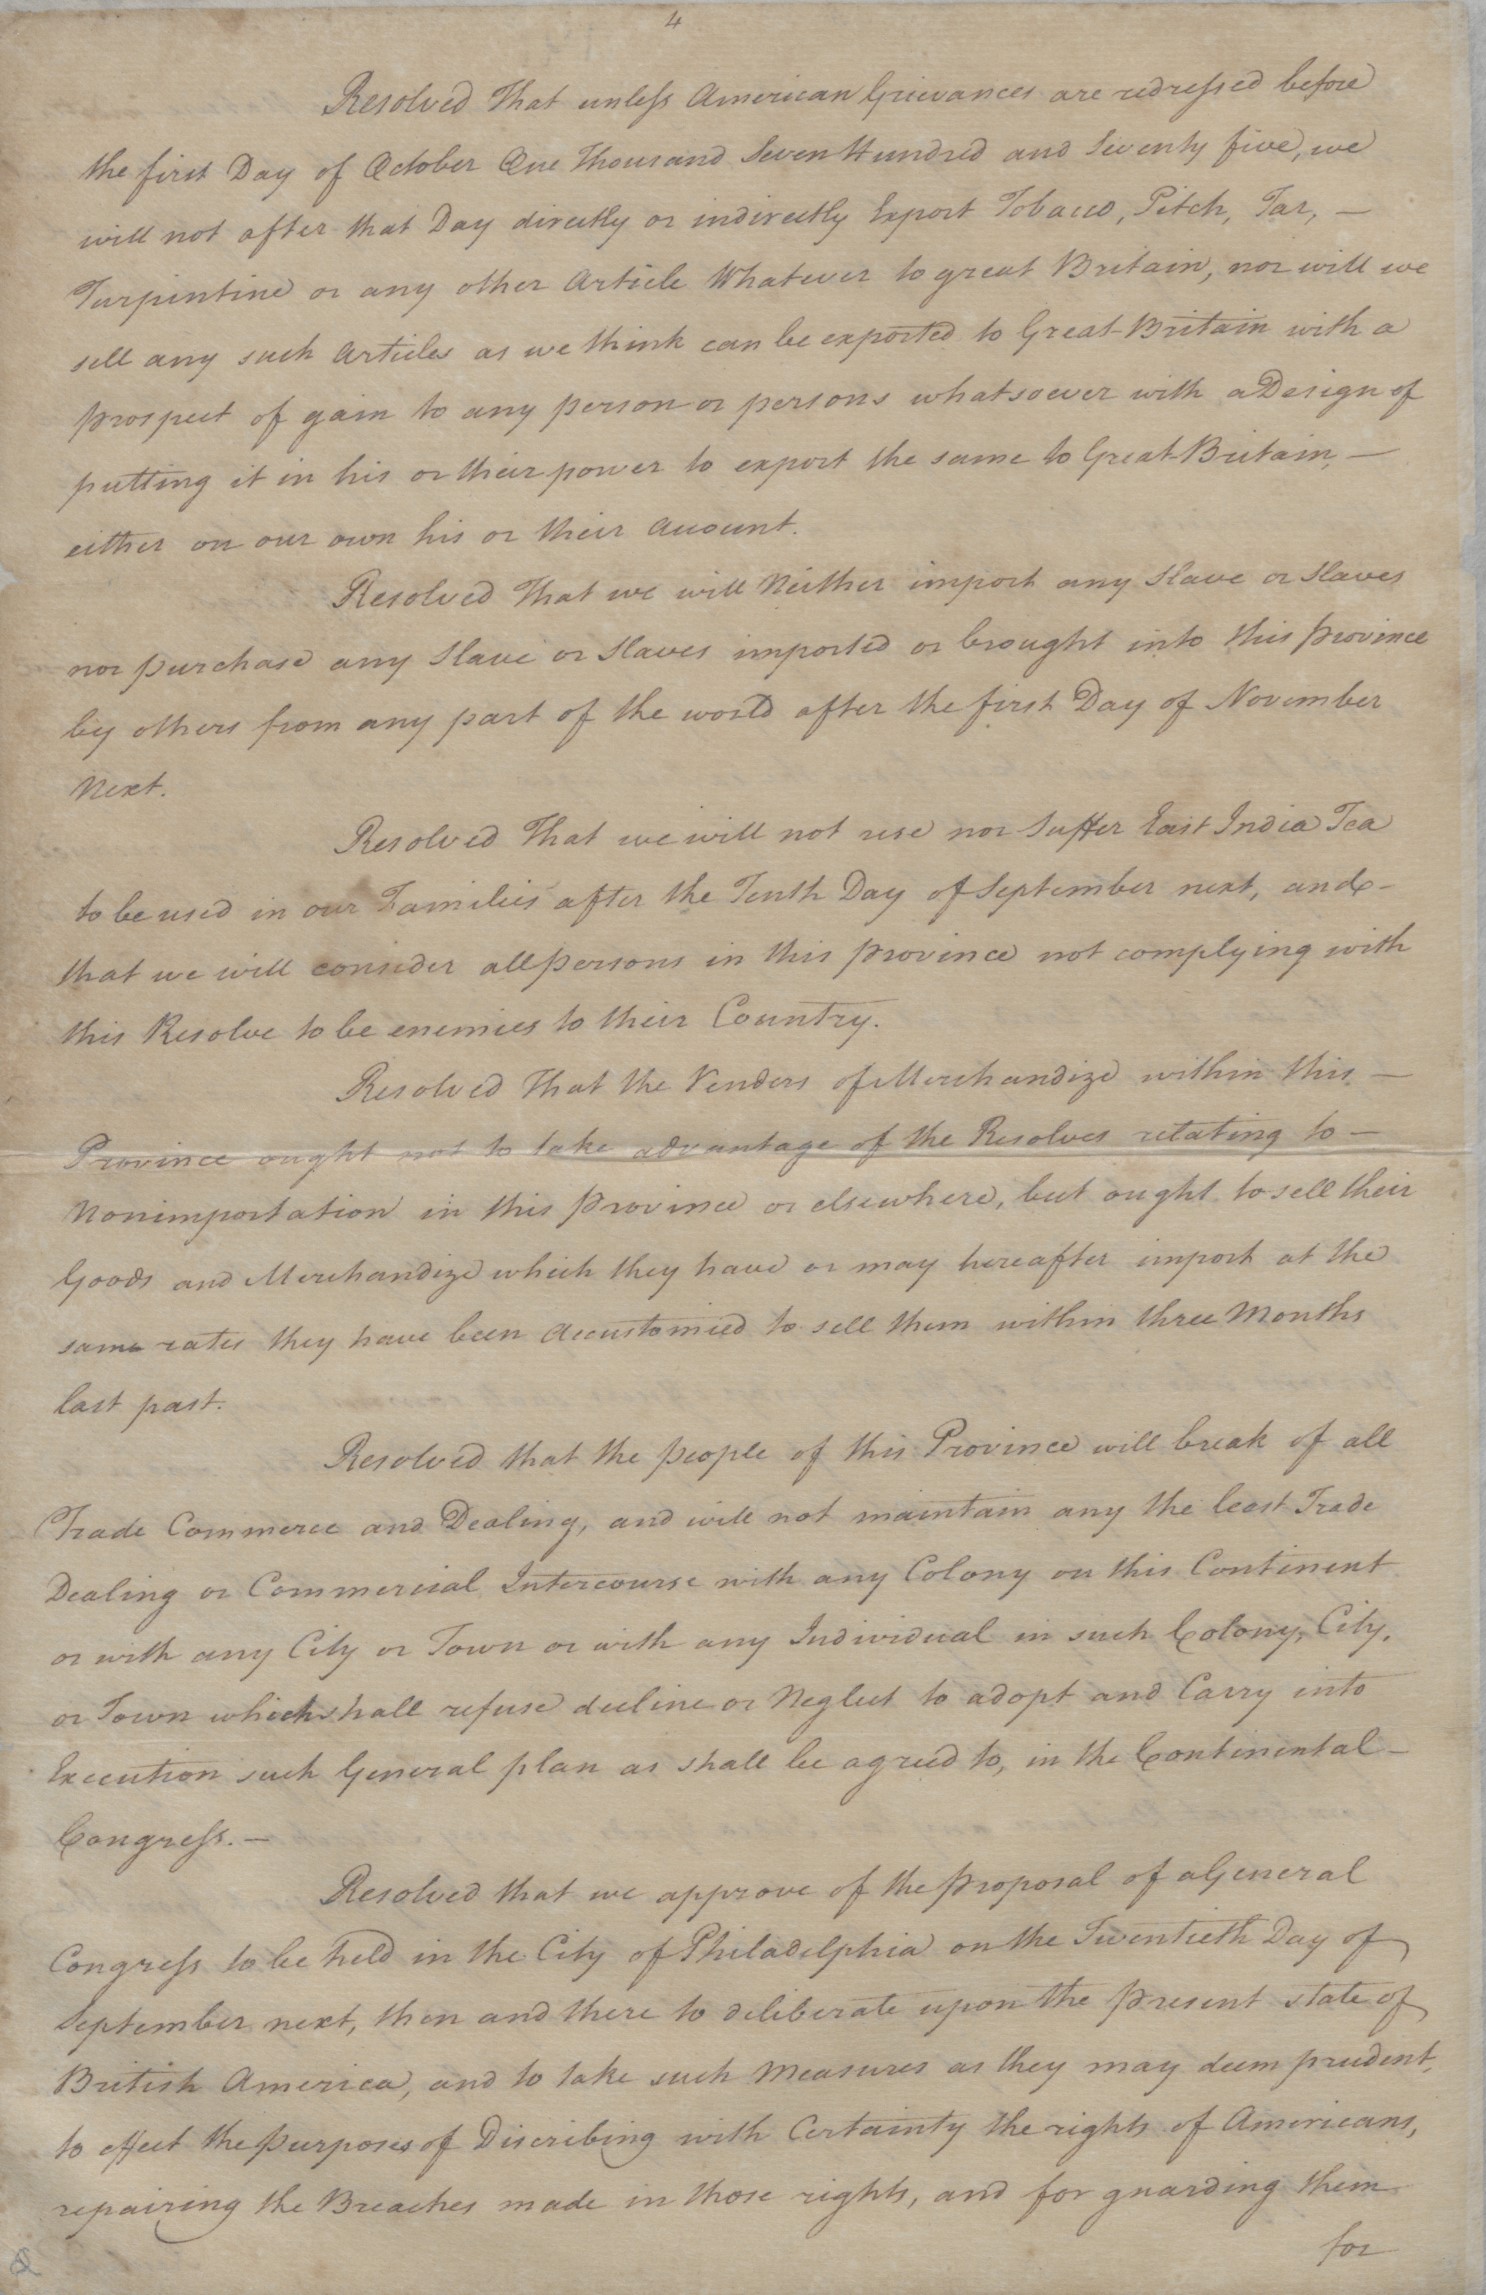 4
Resolved That unless American Grievances are redressed before
the first Day of October One Thousand Seven Hundred and Seventy five, we
will not after that Day directly or indirectly Export Tobacco, Pitch, Tar, —
Turpintine or any other Article Whatever to great Britain, nor will we
sell any such Articles as we think can be exported to Great Britain with a
prospect of gain to any person or persons whatsoever with a Design of
putting it in his or their power to export the same to Great Britain, —
either on our own his or their account.
Resolved That we will Neither import any Slave or Slaves
nor purchase any Slave or Slaves imported or brought into this province
by others from any part of the world after the first Day of November
Next.
Resolved That we will not use nor Suffer East India Tea
to be used in our Families after the Tenth Day of September next, and -
that we will consider all persons in this province not complying with
this Resolve to be enemies to their Country.
Resolved That the Venders of Merchandize within this —
Province ought not to take advantage of the Resolves relating to —
Nonimportation in this Province or elsewhere, but ought to sell their
Goods and Merchandize which they have or may hereafter import at the
same rates they have been accustomied to sell them within three Months
last past.
Resolved that the people of this Province will break of all
Trade Commerce and Dealing, and will not maintain any the least Trade
Dealing or Commercial Intercourse with any Colony on this Continent
or with any City or Town or with any Individual in such Colony, City,
or Town which shall refuse decline or Neglect to adopt and Carry into
Execution such General plan as shall be agreed to, in the Continental —
Congress. —
Resolved that we approve of the proposal of a General
Congress to be held in the City of Philadelphia on the Twentieth Day of
September next, then and there to deliberate upon the present state of
British America, and to take such Measures as they may deem prudent,
to effect the purposes of Discribing with Certainty the rights of Americans,
repairing the Breaches made in those rights, and for guarding them
for